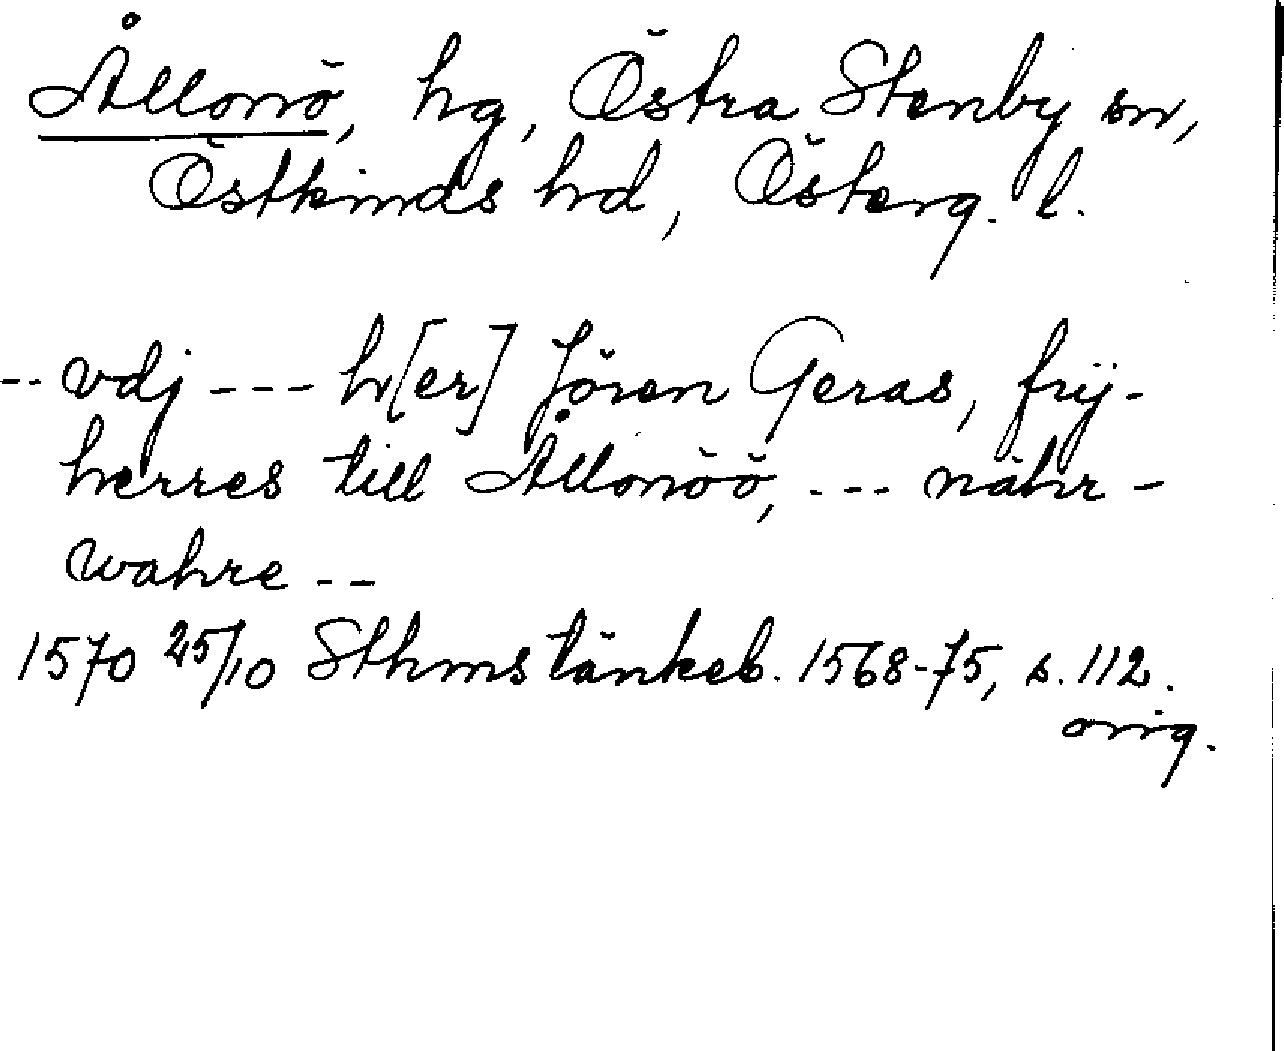 Ållonö, hg, Östra Stenby sn,
Östkinds hd, Österg. l.
-- vdj --- h[er] Jören Geras, frij-
herres till Ållonöö, --- nähr-
wahre --
1570 25/10 Sthms tänkeb. 1568-75, s. 112.
orig.